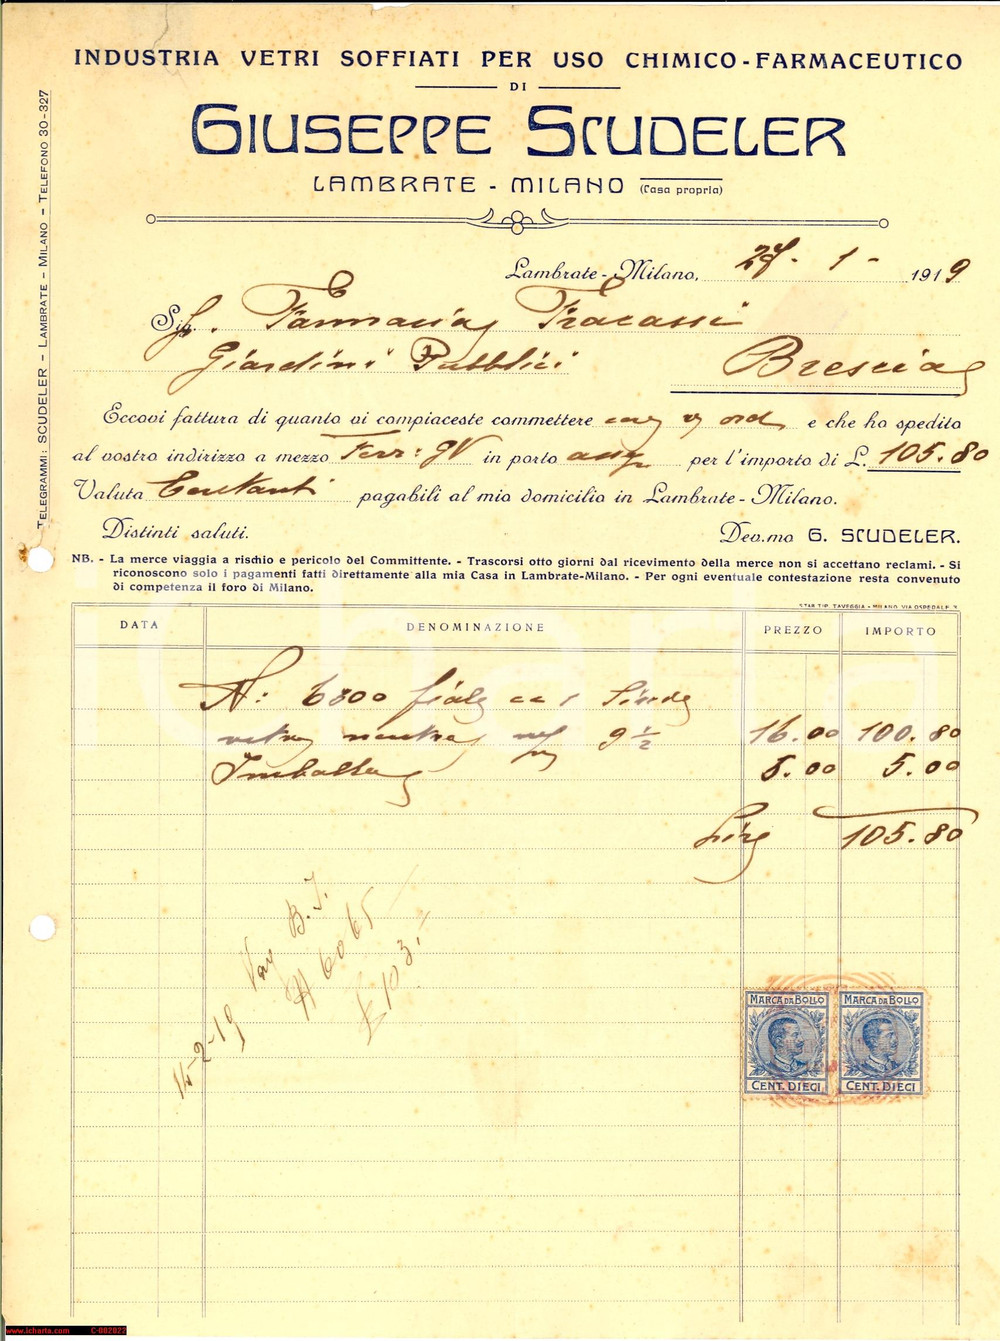 INDUSTRIA VETRI SOFFIATI PER USO CHIMICO-FARMACEUTICO
DI
GIUSEPPE SCUDELER
LAMBRATE - MILANO (Casa propria)
TELEGRAMMI: SCUDELER - LAMBRATE - MILANO - TELEFONO 30-327
Lambrate-Milano, 27 - 1 - 1919
Sig. Farmacia Fracassi
Giardini Pubblici Brescia
Eccovi fattura di quanto vi compiaceste commettere ord. e che ho spedito
al vostro indirizzo a mezzo Ferr: GV in porto assg per l'importo di L. 105.80
Valuta Contanti pagabili al mio domicilio in Lambrate-Milano.
Distinti saluti. Dev.mo G. SCUDELER.
NB. - La merce viaggia a rischio e pericolo del Committente. - Trascorsi otto giorni dal ricevimento della merce non si accettano reclami. - Si
riconoscono solo i pagamenti fatti direttamente alla mia Casa in Lambrate-Milano. - Per ogni eventuale contestazione resta convenuto
di competenza il foro di Milano.
STAB. TIP. TAVEGGIA - MILANO VIA OSPEDALE 3
DATA DENOMINAZIONE PREZZO IMPORTO
N: 6300 fiale cc 1
vetro neutro 9 1/2 16.00 100.80
Imballag 5.00 5.00
Lire 105.80
14-2-19 Vag B.I.
N 6065
£ 103.-
MARCA DA BOLLO MARCA DA BOLLO
CENT. DIECI CENT. DIECI
icharta
www.icharta.com C-002022